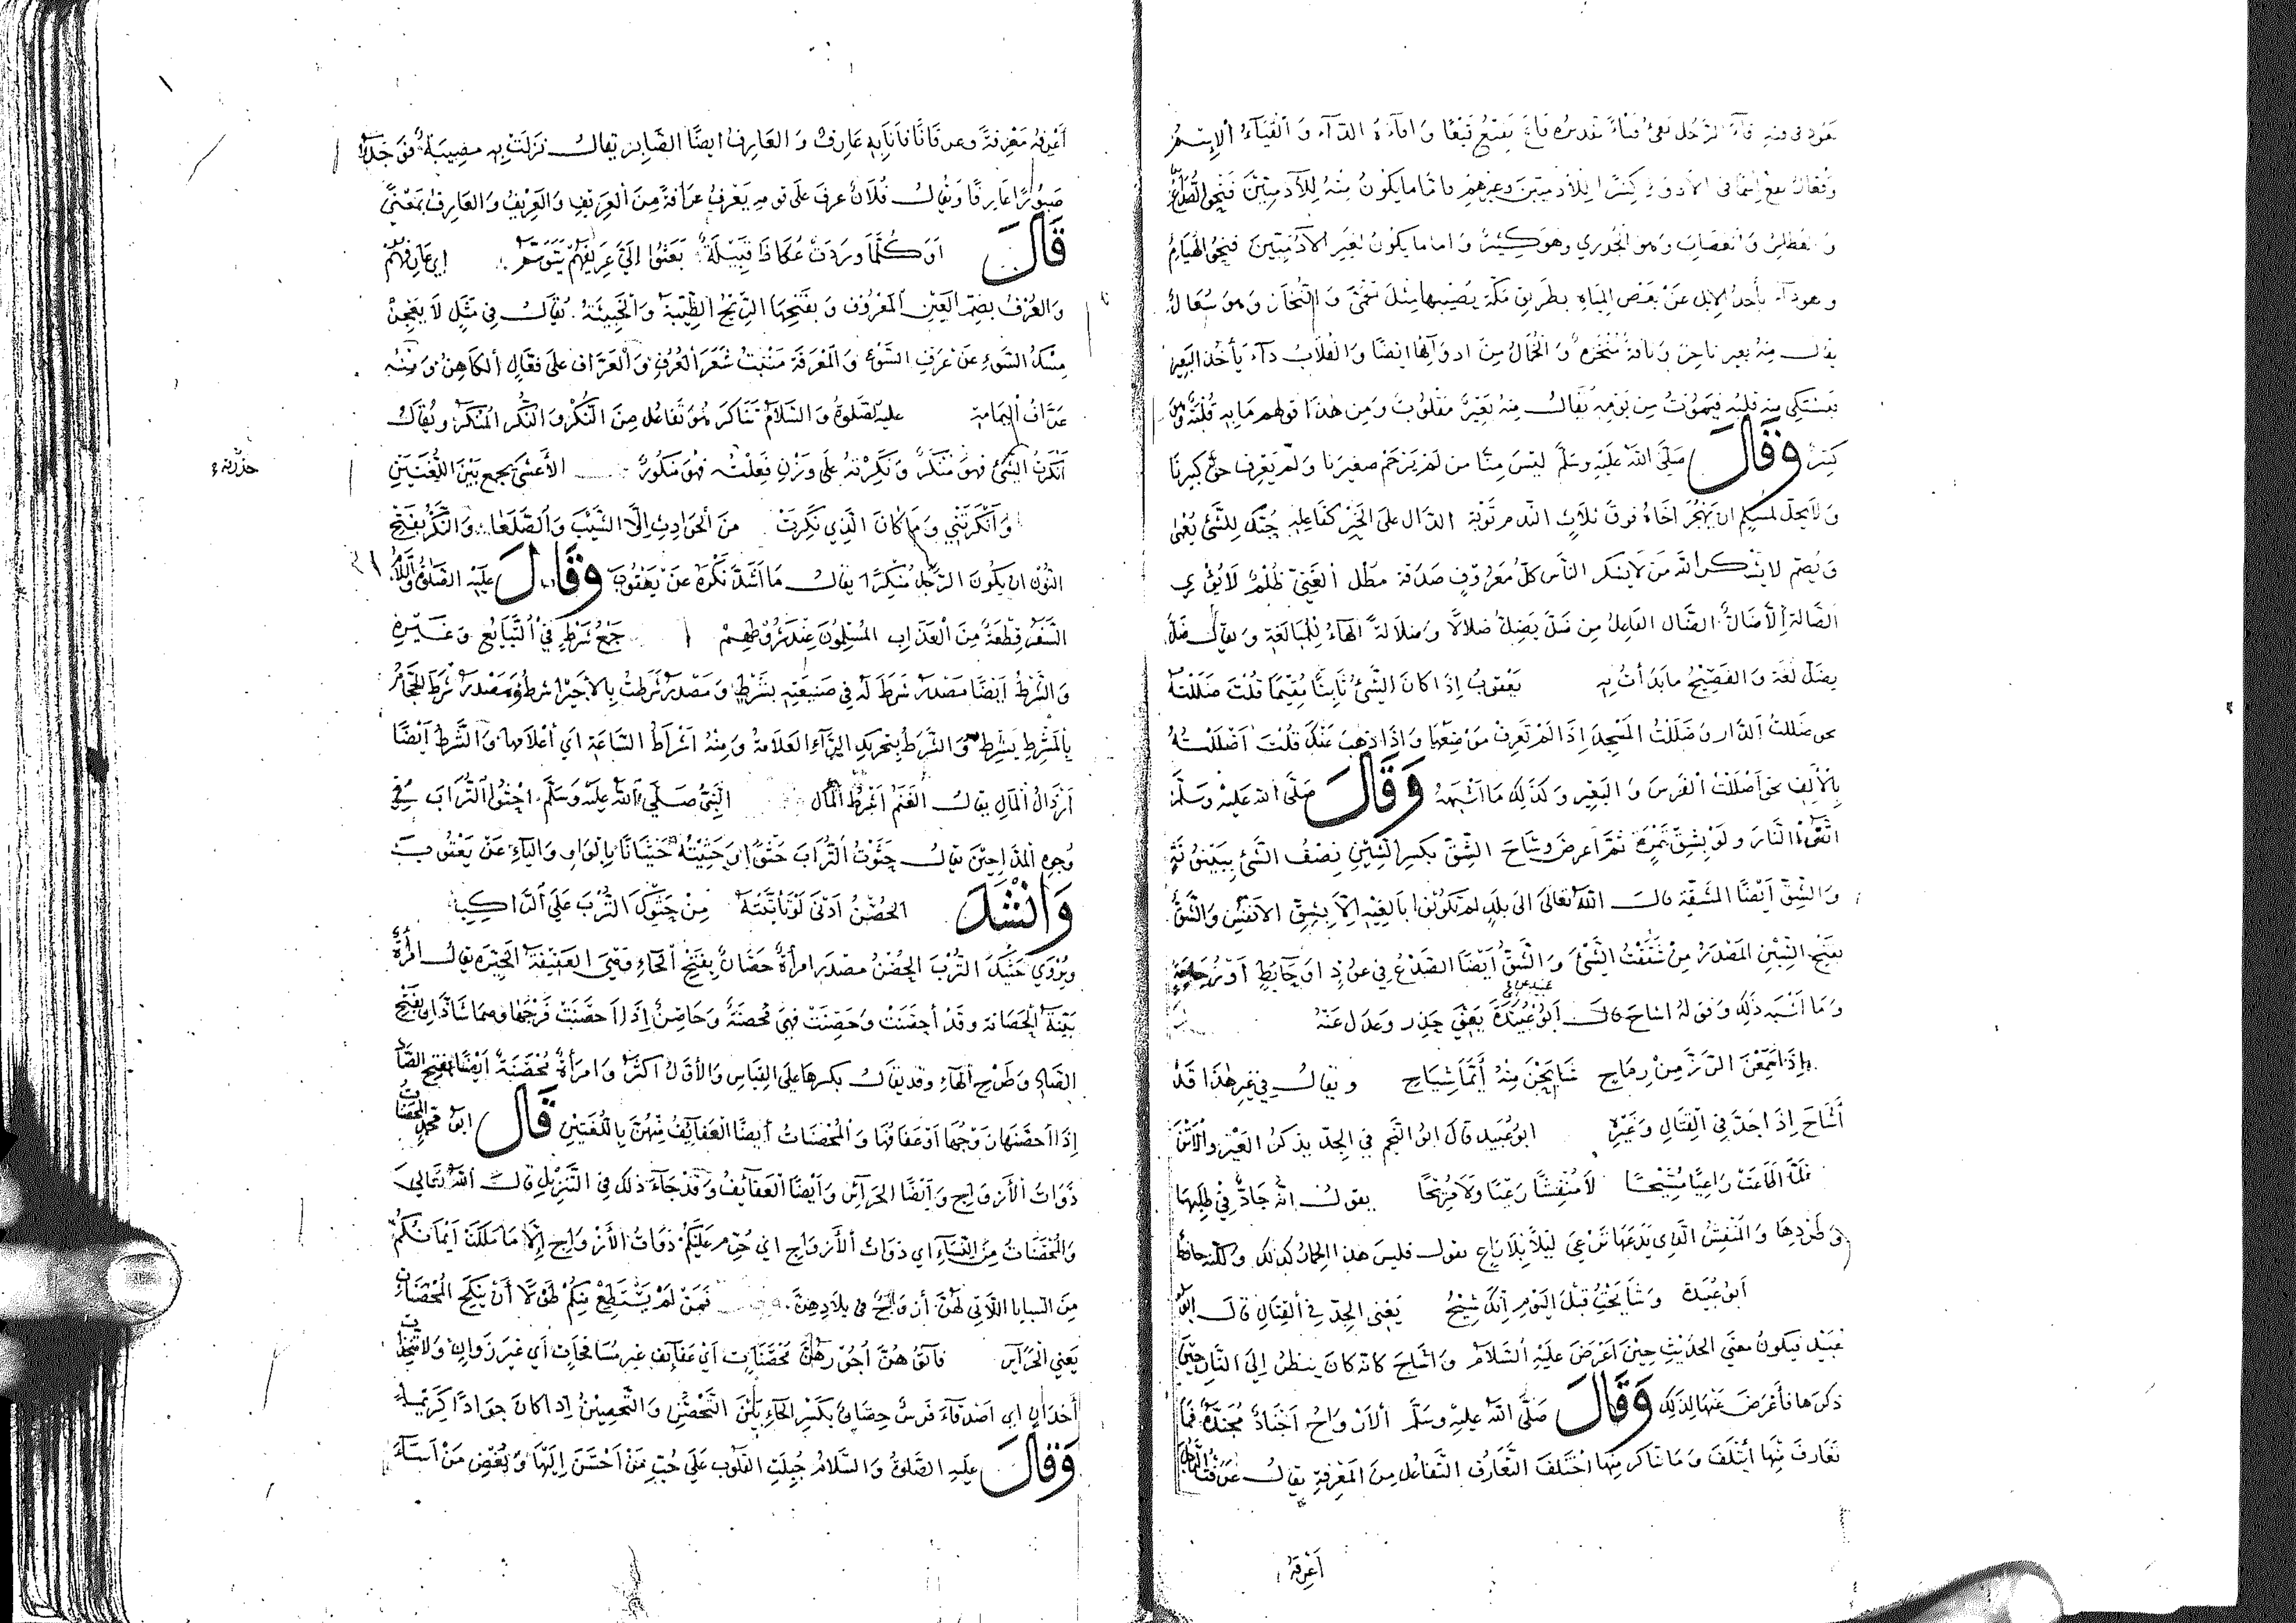 يعود في قيئه قاء الرجل يقيء قياء تقديره قاع يقيع قيعا وأقاءه الدآء والقياء الإسم
وفعال يقع إسما في الأدوآء كثيرا للأدميين وغيرهم فاما ما يكون منه للآدميين فنحو الصداع
وهو الجدري وهو كثير واما ما يكون لغير الآدميين فنحو الهيام
وهو دآء يأخذ الإبل عن بعض المياه بطريق مكة يصيبها مثل الحمى والنحاز وهو سعال
يقال منه بعير ناحز وناقة منحزة والخمال من ادوآئها ايضا والقلاب دآء يأخذ البعير
فيشتكي منه قلبه فيموت من يومه يقال منه بعير مقلوب ومن هذا قولهم ما به قلبة وهن
كثير وقال صلى الله عليه وسلم ليس منا من لم يرحم صغيرنا ولم يعرف حق كبيرنا
ولا يحل لمسلم ان يهجر اخاه فوق ثلاث الندم توبة الدال على الخير كفاعله حبك للشئ يعمى
ويصم لا يشكر الله من لا يشكر الناس كل معروف صدقة مطل الغني ظلم لا يؤوي
الضالة إلا ضال الضال الفاعل من ضل يضل ضلالا وضلالة الهاء للمبالغة ويقال ضل
يضل لغة والفصيح ما بدأت به يعقوب إذا كان الشئ ثابتا مقيما قلت ضللته
نحو ضللت الدار وضللت المسجد إذا لم تعرف موضعها وإذا ذهب عنك قلت أضللته
بالألف نحو أضللت الفرس والبعير وكذلك ما اشبهه وقال صلى الله عليه وسلم
اتقوا النار ولو بشق تمرة ثم أعرض وشاح الشق بكسر الشين نصف الشئ
والشق أيضا المشقة قال الله تعالى الى بلد لم تكونوا بالغيه إلا بشق الأنفس والشق
بفتح الشين المصدر من شققت الشئ والشق أيضا الصدع في عود او حائط أو زجاجة
وما أشبه ذلك وقوله اشاح قال أبو عبيدة يعني حذر وعدل عنه
إذا سمعن الرز من رماح شايحن منه أيما شياح ويقال في غير هذا قد
أشاح إذا جد في القتال وغيره ابو عبيد قال ابو النجم في الجد يذكر العير والأتن
قبا أطاعت راعيا مشيحا لا منفشا رعيا ولا مريحا يقول انه جاد في طلبها
وطردها والمنفش الذي يدعها ترعى ليلا بلا راع يقول فليس هذا الحمار كذلك ولكنه حافظ
أبو عبيدة وشايحت قبل اليوم إنك شيح يعني الجد في القتال قال ابو
عبيد فيكون معنى الحديث حين أعرض عليه السلام وأشاح كانه كان ينظر إلى النار حين
ذكرها فأعرض عنها لذلك وقال صلى الله عليه وسلم الأرواح أجناد مجندة فما
تعارف منها أئتلف وما تناكر منها اختلف التعارف التفاعل من المعرفة يقال عرفت
أعرفه
أعرفه معرفة وعرفانا فأنا به عارف والعارف ايضا الصابر يقال نزلت به مصيبة فوجد
صبورا عارفا ويقال فلان عرف على قومه يعرف عرافة من العريف والعريف والعارف بمعنى
قال او كلما وردت عكاظ قبيلة بعثوا إلي عريفهم يتوسم اي عارفهم
والعرف بضم العين المعروف وبفتحها الريح الطيبة والخبيثة يقال في مثل لا يعجز
مسك السوء عن عرف السوء والمعرفة منبت شعر العرف والعراف على فعال الكاهن ومنه
عراف اليمامة عليه الصلوة والسلام تناكر هو تفاعل من النكر والنكر المنكر ويقال
أنكرت الشئ فهو منكر ونكرته على وزن فعلته فهو منكور الأعشى يجمع بين اللغتين
وأنكرتني وما كان الذي نكرت من الحوادث إلا الشيب والصلعا والنكر بفتح
النون ان يكون الرجل منكرا يقال ما أشد نكره عن يعقوب وقال عليه الصلوة والسلام
السفر قطعة من العذاب المسلمون عند شروطهم جمع شرط في التبايع وغيره
والشرط أيضا مصدر شرط له في صنيعته بشرط ومصدر شرطت بالأجير اشرط ومصدر شرط الحجام
بالمشرط يشرط والشرط بتحريك الرآء العلامة ومنه اشراط الساعة اي أعلامها والشرط أيضا
أرذال المال يقال الغنم أشرط المال النبي صلى الله عليه وسلم احثوا التراب في
وجوه المداحين يقال حثوت التراب حثوا وحثيته حثيانا بالواو والياء عن يعقوب
وانشد الحصن أدنى لو تأييته من حثوك الترب على الراكب
ويروى حثيك الترب الحصن مصدر امرأة حصان بفتح الحاء وهي العفيفة يقال امرأة
بينة الحصانة وقد أحصنت وحصنت فهي محصنة وحاصن إذا احصنت فرجها وهما شاذان بفتح
الصاد وطرح الهاء وقد يقال بكسرها على القياس والأول اكثر وامرأة محصنة أيضا بفتح الصاد
إذا احصنها زوجها أو عفافها والمحصنات أيضا العفائف منهن باللغتين قال ابو محمد المحصنات
ذوات الأزواج وأيضا الحرائر وأيضا العفائف وقد جاء ذلك في التنزيل قال الله تعالى
والمحصنات من النساء اي ذوات الأزواج اي حرم عليكم ذوات الأزواج إلا ما ملكت أيمانكم
من السبايا اللاتي لهن أزواج في بلادهن فمن لم يستطع منكم طولا أن ينكح المحصنات
يعني الحرآير فآتوهن أجورهن محصنات أي عفائف غير مسافحات أي غير زوان ولا متخذات
أخدان اي أصدقاء فرس حصان بكسر الحاء بين التحصن والتحصين إذا كان جوادا كريما
وقال عليه الصلوة والسلام جبلت القلوب على حب من أحسن إليها وبغض من أساء